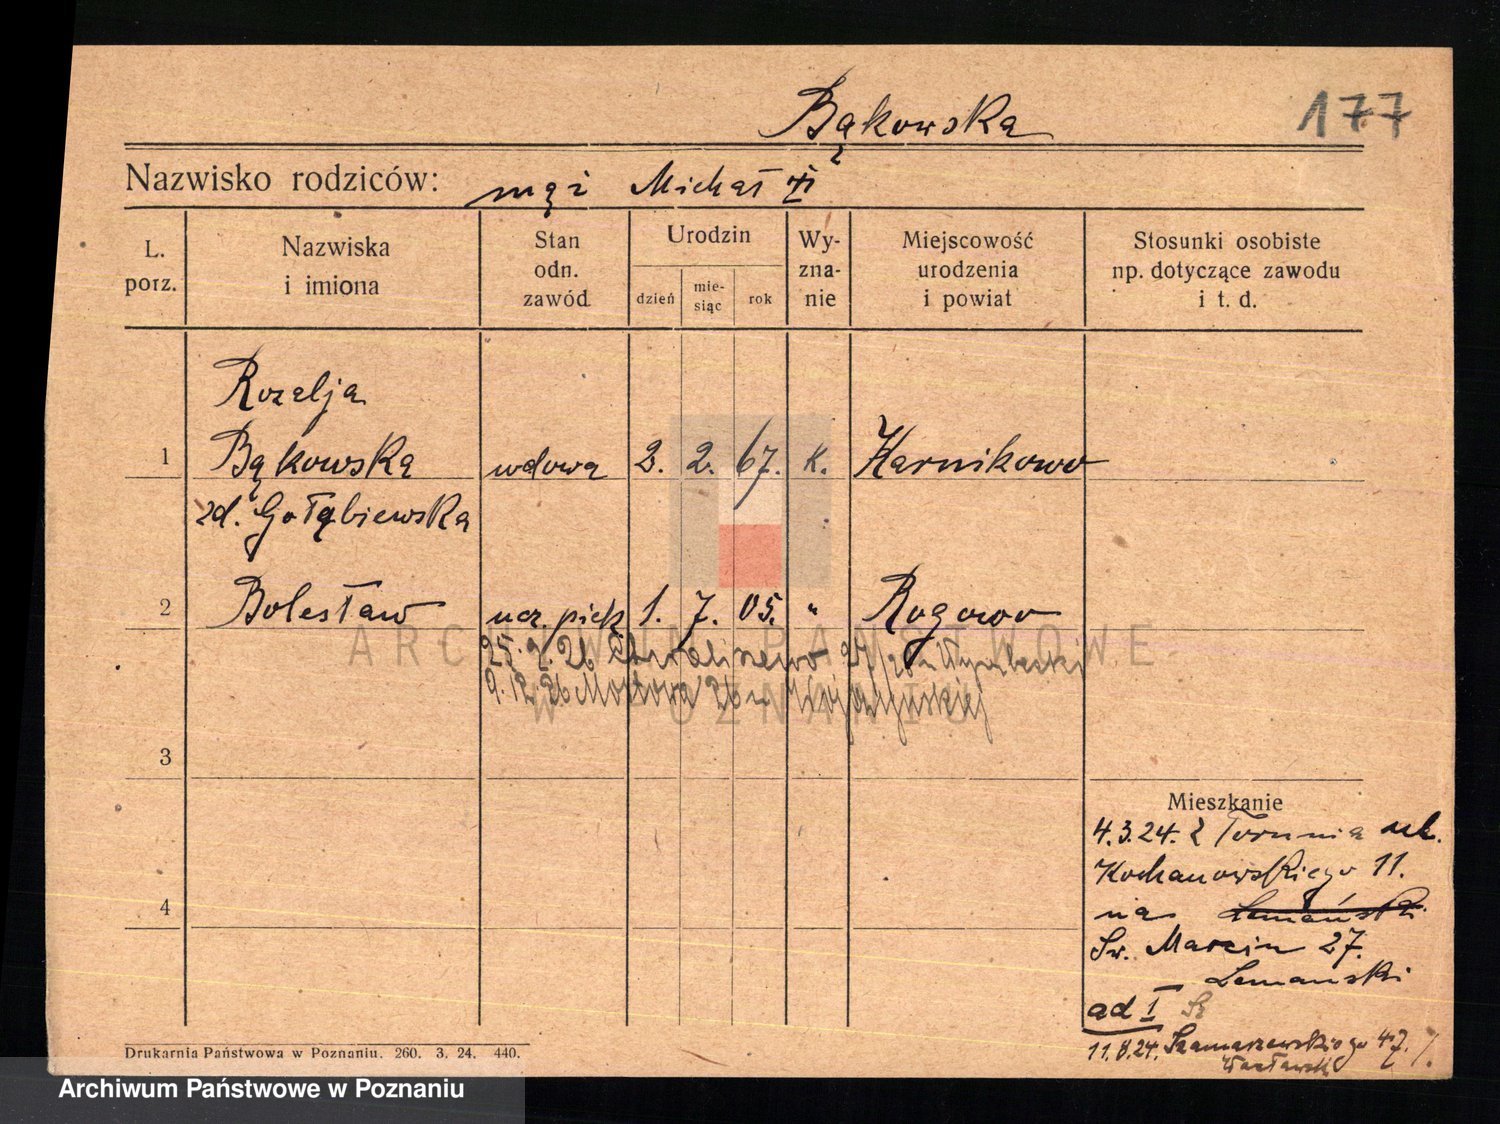 Bąkowska
177
Nazwisko rodziców: mąż Michał
L. porz.
Nazwiska i imiona
Stan odn. zawód
Urodzin
dzień
mie-siąc
rok
Wy-zna-nie
Miejscowość urodzenia i powiat
Stosunki osobiste np. dotyczące zawodu i t. d.
Rozalja
1 Bąkowska wdowa 2. 2. 67. k. Karnikowo
zd. Gołąbiewska
2 Bolesław ucz. piek. 1. 7. 05. " Rogowo
ARCHIWUM PAŃSTWOWE
W POZNANIU
25. 2. 26
9. 12. 26 Mostowa 26 u
3
Mieszkanie
4.3.24. z Torunia ul.
Kochanowskiego 11.
4
na Lemański
Św. Marcin 27.
Lemański
ad 1
11.8.24. Szamarzewskiego 47.
Drukarnia Państwowa w Poznaniu. 260. 3. 24. 440.
Archiwum Państwowe w Poznaniu